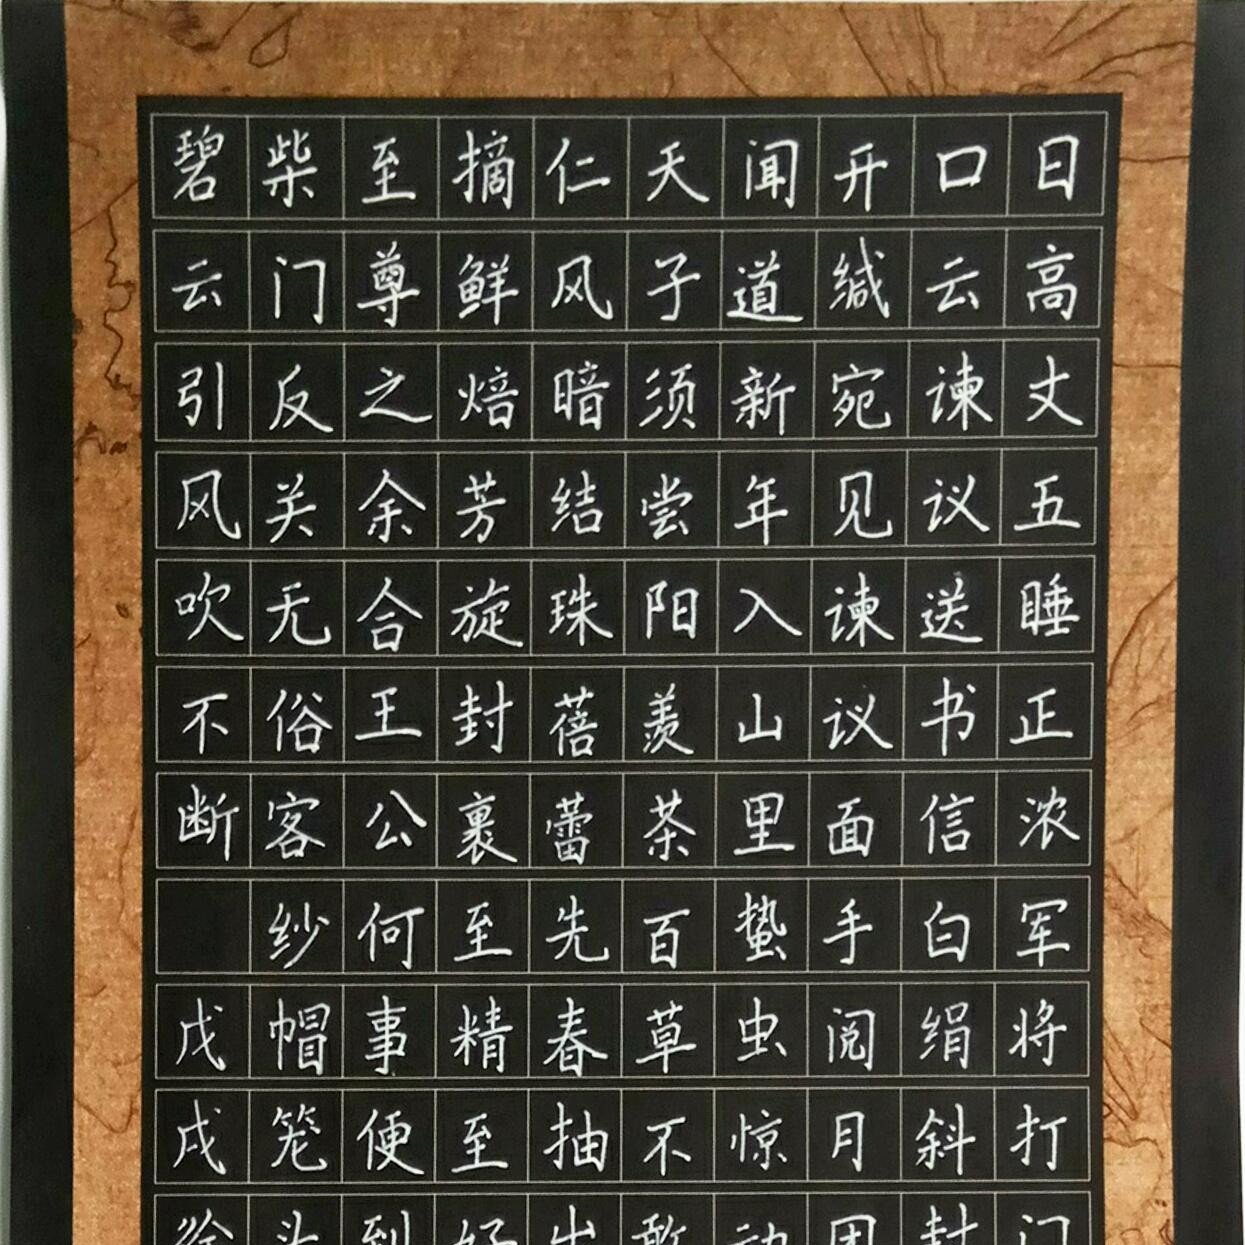 日高丈五睡正浓军将打门
口云谏议送书信白绢斜封
开缄宛见谏议面手阅月团
闻道新年入山里蛰虫惊动
天子须尝阳羡茶百草不敢
仁风暗结珠蓓蕾先春抽出
摘鲜焙芳旋封裹至精至好
至尊之余合王公何事便到
柴门反关无俗客纱帽笼头
碧云引风吹不断 戊戌